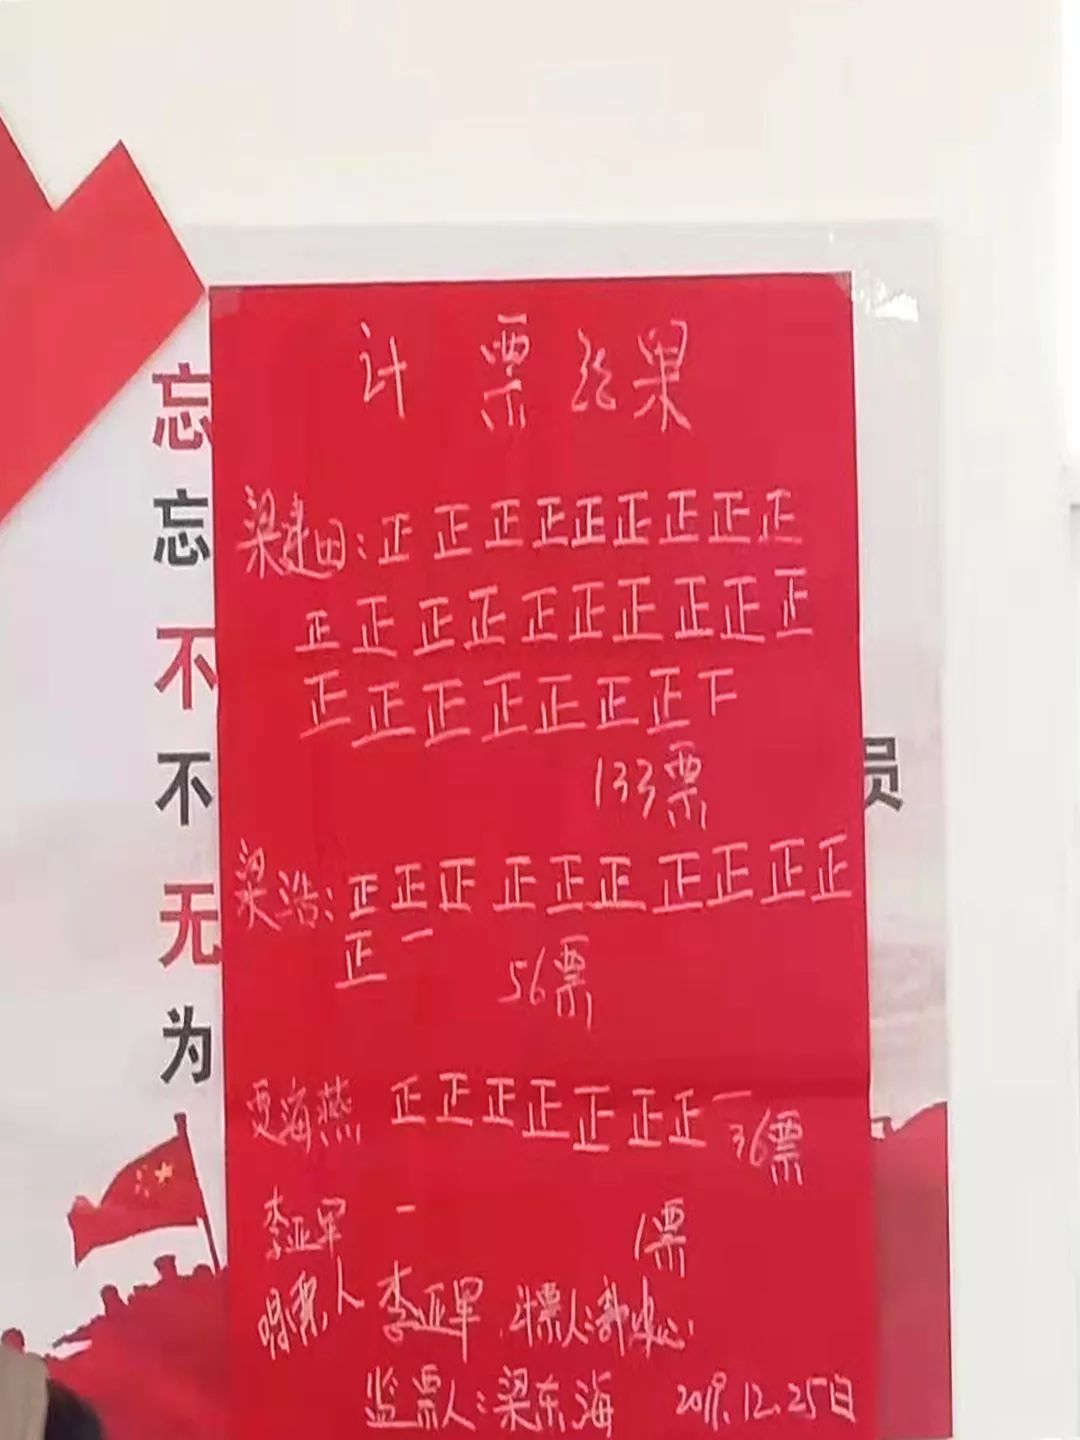 计票结果
梁建田：正正正正正正正正正
正正正正正正正正正正
正正正正正正正下
133票
梁浩：正正正正正正正正正正
正一
56票
贾海燕 正正正正正正正一
36票
李亚军 一 1票
唱票人 李亚军 计票人：
监票人：梁东海 2019.12.25日
忘
忘
不
不
无
为
员